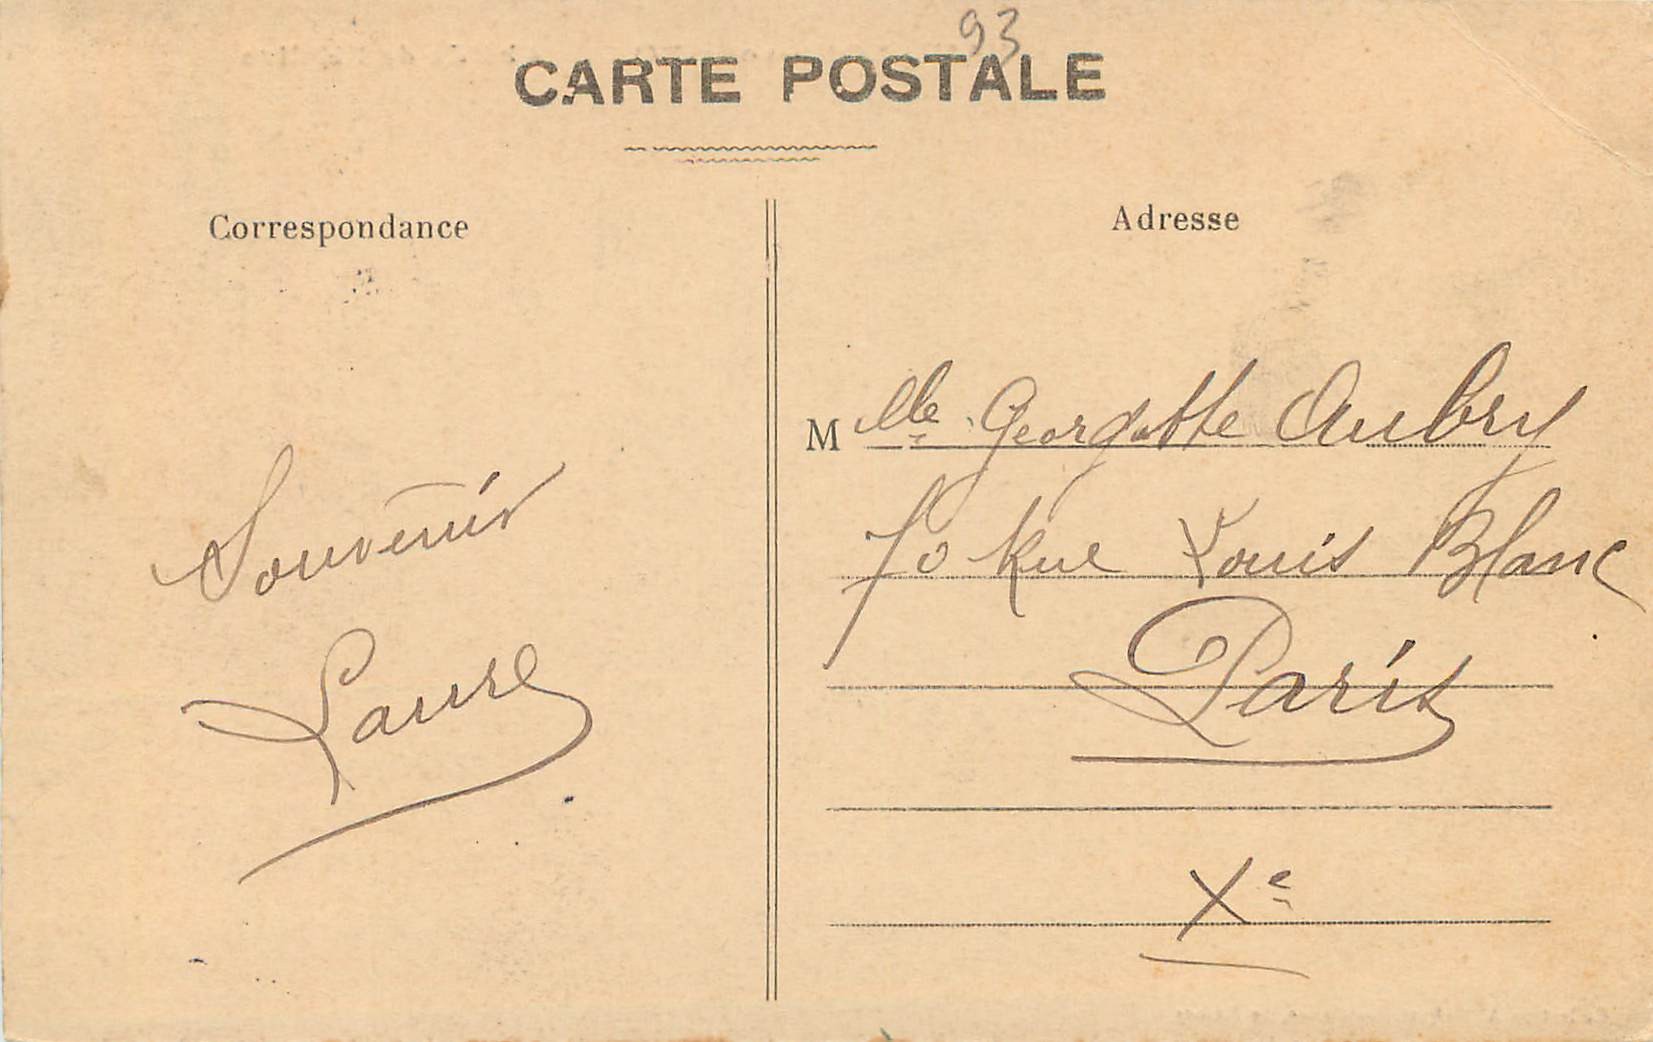 93
CARTE POSTALE
Correspondance
Adresse
Souvenir
Laure
Mlle Georgette Aubry
70 Rue Louis Blanc
Paris
Xe